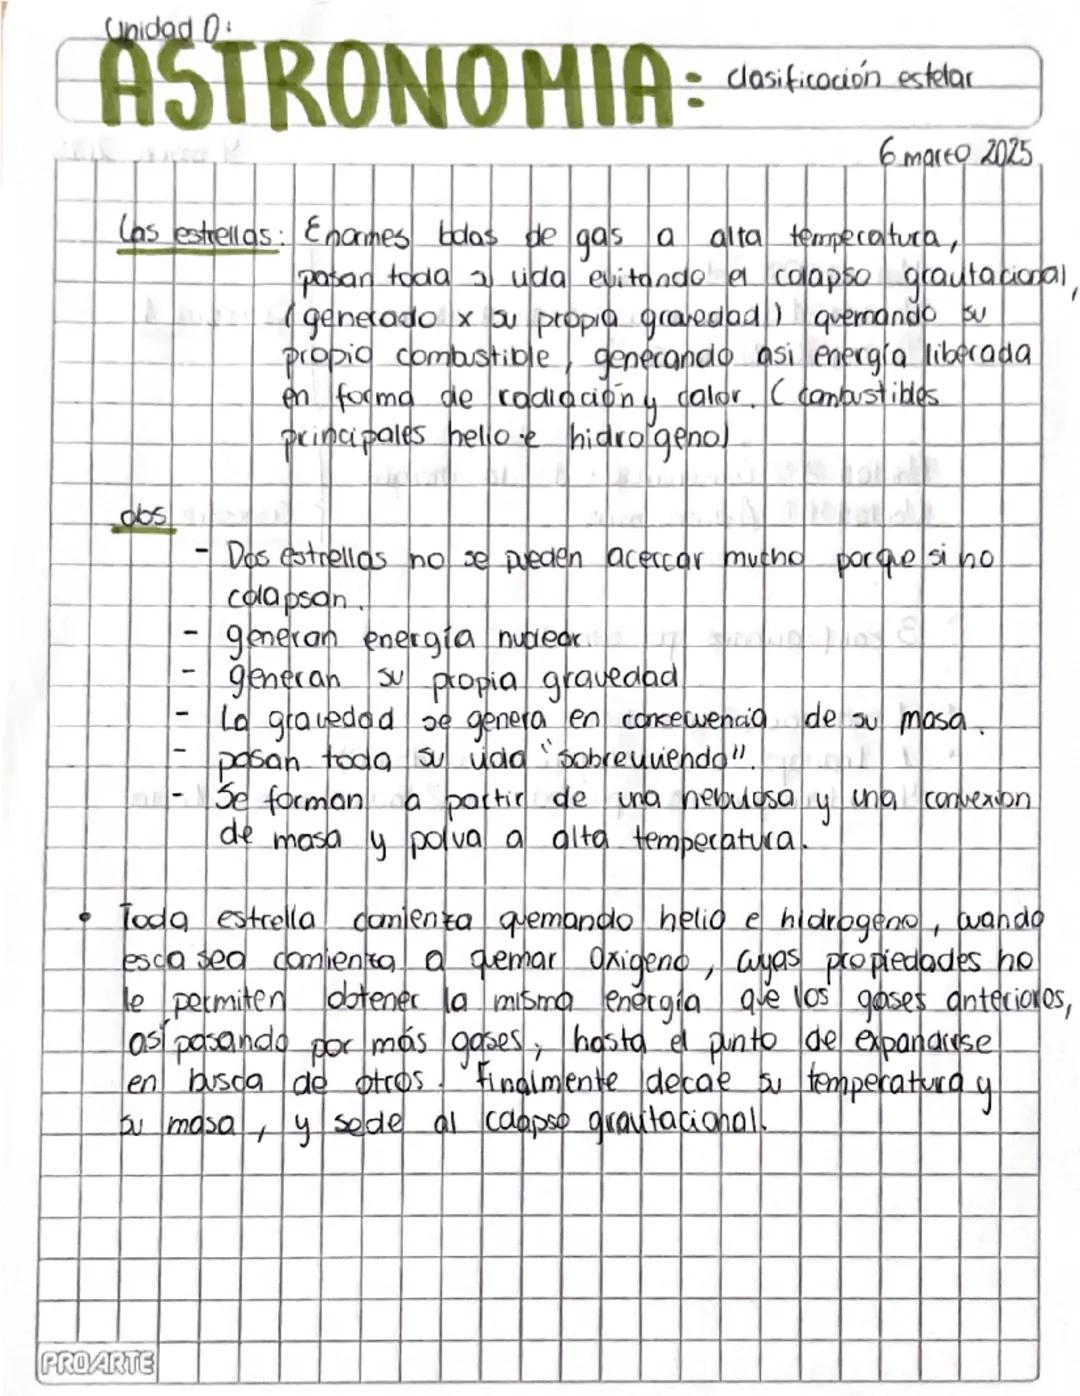 Unidad 0:
ASTRONOMIA: clasificación estelar
6 marzo 2025
Las estrellas: Enormes bolas de gas a alta temperatura,
pasan toda su vida evitando el colapso gravitacional,
(generado x su propia gravedad) quemando su
propio combustible, generando asi energía liberada
en forma de radiación y calor. (combustibles
principales helio e hidrogeno)
obs
- Dos estrellas no se pueden acercar mucho porque si no
colapsan.
- generan energía nuclear.
- generan su propia gravedad
- La gravedad se genera en concecuencia de su masa.
- pasan toda su vida "sobreviviendo".
- Se forman a partir de una nebulosa y una convexion
de masa y polva a alta temperatura.
• Toda estrella comienza quemando helio e hidrogeno, cuando
escasea comienza a quemar Oxigeno, cuyas propiedades no
le permiten obtener la misma energía que los gases anteriores,
así pasando por más gases, hasta el punto de expandirse
en busca de otros. Finalmente decae su temperatura y
su masa, y sede al colapso gravitacional.
PROARTE